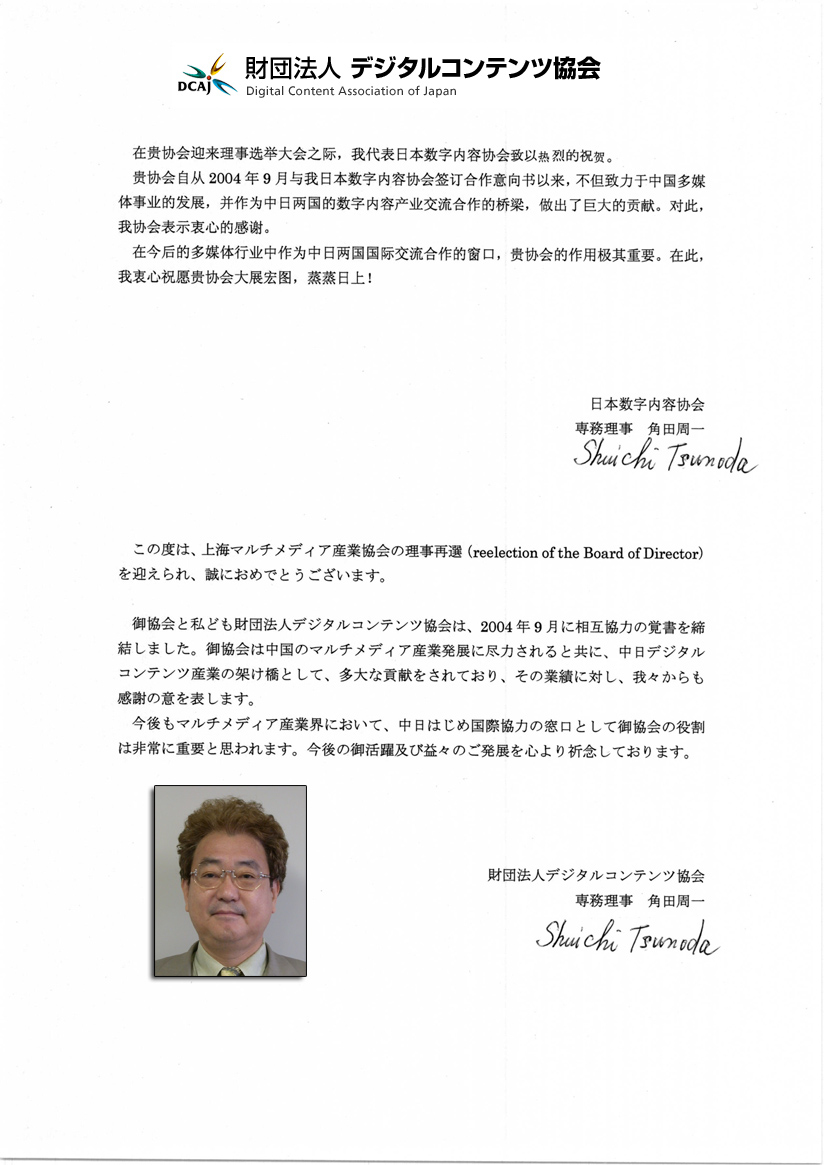 DCAJ
財団法人 デジタルコンテンツ協会
Digital Content Association of Japan
在贵协会迎来理事选举大会之际，我代表日本数字内容协会致以热烈的祝贺。
贵协会自从 2004 年 9 月与我日本数字内容协会签订合作意向书以来，不但致力于中国多媒
体事业的发展，并作为中日两国的数字内容产业交流合作的桥梁，做出了巨大的贡献。对此，
我协会表示衷心的感谢。
在今后的多媒体行业中作为中日两国国际交流合作的窗口，贵协会的作用极其重要。在此，
我衷心祝愿贵协会大展宏图，蒸蒸日上！
日本数字内容协会
専務理事 角田周一
Shuichi Tsunoda
この度は、上海マルチメディア産業協会の理事再選（reelection of the Board of Director）
を迎えられ、誠におめでとうございます。
御協会と私ども財団法人デジタルコンテンツ協会は、2004 年 9 月に相互協力の覚書を締
結しました。御協会は中国のマルチメディア産業発展に尽力されると共に、中日デジタル
コンテンツ産業の架け橋として、多大な貢献をされており、その業績に対し、我々からも
感謝の意を表します。
今後もマルチメディア産業界において、中日はじめ国際協力の窓口として御協会の役割
は非常に重要と思われます。今後の御活躍及び益々のご発展を心より祈念しております。
財団法人デジタルコンテンツ協会
専務理事 角田周一
Shuichi Tsunoda